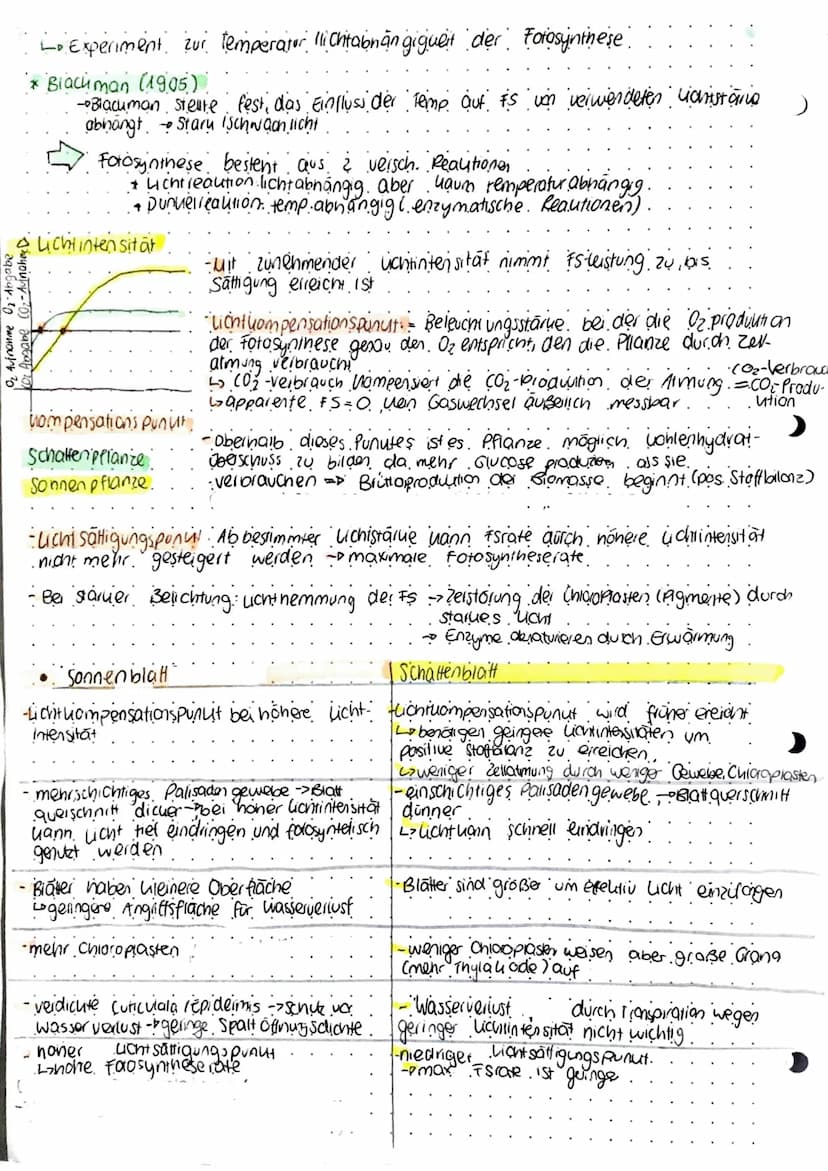 ↳ Experiment zur Temperatur/lichtabhängigkeit der Fotosynthese
* Blackman (1905)
→ Blackman stellte fest, das Einfluss der Temp auf FS von verwendeten Lichtstärke
abhängt → Stark/schwachlicht
⇒ Fotosynthese besteht aus 2 versch. Reaktionen
* Lichtreaktion: lichtabhängig aber kaum temperaturabhängig
* Dunkelreaktion: temp.abhängig (enzymatische Reaktionen)
△ Lichtintensität
O2 Aufnahme O2-Angabe
CO2 Abgabe CO2-Aufnahme
- Mit zunehmender Lichtintensität nimmt FS-leistung zu, bis
Sättigung erreicht ist
Lichtkompensationspunkt: = Beleuchtungsstärke bei der die O2 produktion
der Fotosynthese genau den O2 entspricht, den die Pflanze durch Zell-
atmung verbraucht
↳ CO2-Verbrauch kompensiert die CO2-Produktion der Atmung
CO2-Verbrauch
= CO2-Produ-
ktion
↳ apparente FS=0, kein Gaswechsel äußerlich messbar
Kompensationspunkt
Schattenpflanze
Sonnenpflanze
- Oberhalb dieses Punktes ist es Pflanze möglich Kohlenhydrat-
überschuss zu bilden, da mehr Glucose produziert als sie
verbrauchen ⇒ Bruttoproduktion der Biomasse beginnt (pos. Stoffbilanz)
- Lichtsättigungspunkt: Ab bestimmter Lichtstärke kann FSrate durch höhere Lichtintensität
nicht mehr gesteigert werden → maximale Fotosyntheserate
- Bei starker Belichtung: Lichthemmung der FS → Zerstörung der Chloroplasten (Pigmente) durch
starkes Licht
→ Enzyme denaturieren durch Erwärmung
• Sonnenblatt
Schattenblatt
- Lichtkompensationspunkt bei höhere Licht-
intensität
- Lichtkompensationspunkt wird früher erreicht
↳ benötigen geringere Lichtintensitäten um
positive Stoffbilanz zu erreichen
↳ weniger Zellatmung durch weniger Gewebe, Chloroplasten
- mehrschichtiges Palisadengewebe → Blatt
querschnitt dicker → bei hoher Lichtintensität
kann Licht tief eindringen und fotosyntetisch
genutzt werden
- einschichtiges Palisadengewebe → Blattquerschnitt
dünner
↳ Licht kann schnell eindringen
- Blätter haben kleinere Oberfläche
↳ geringere Angriffsfläche für Wasserverlust
- Blätter sind größer um effektiv Licht einzufangen
- mehr Chloroplasten
- weniger Chloroplasten weisen aber große Grana
(mehr Thylakoide) auf
- verdickte Cuticula/Epidermis → Schutz vor
Wasserverlust → geringe Spaltöffnungsdichte
- Wasserverlust durch Transpiration wegen
geringer Lichtintensität nicht wichtig
- hoher Lichtsättigungspunkt
↳ hohe Fotosyntheserate
- niedriger Lichtsättigungspunkt
→ max FSrate ist geringe